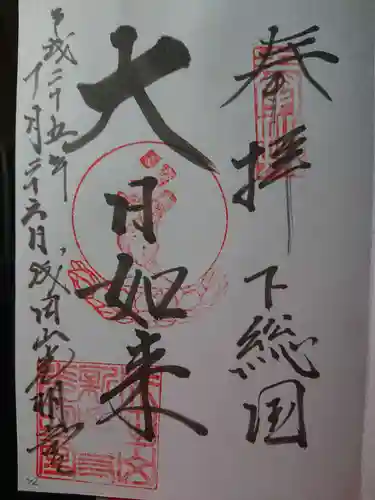 奉拝 下総国
大日如来
平成二十五年
十一月二十六日、成田山光明堂